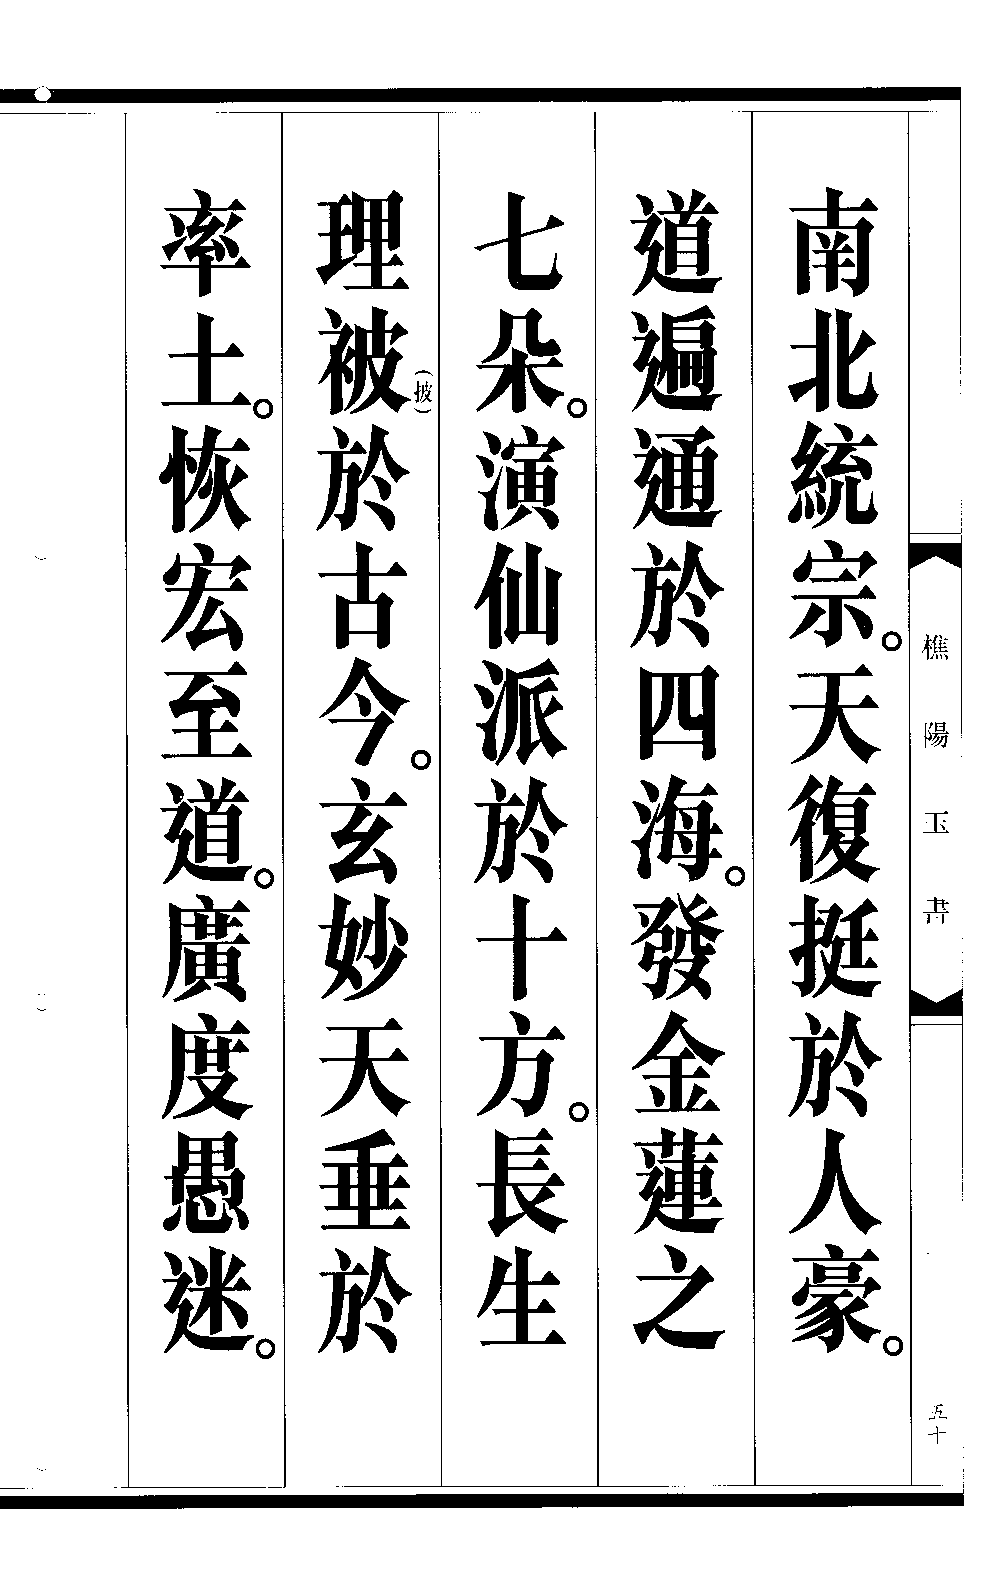 樵陽玉書
五十
南北統宗。天復挺於人豪。
道遍通於四海。發金蓮之
七朵。演仙派於十方。長生
理被(披)於古今。玄妙天垂於
率土。恢宏至道。廣度愚迷。